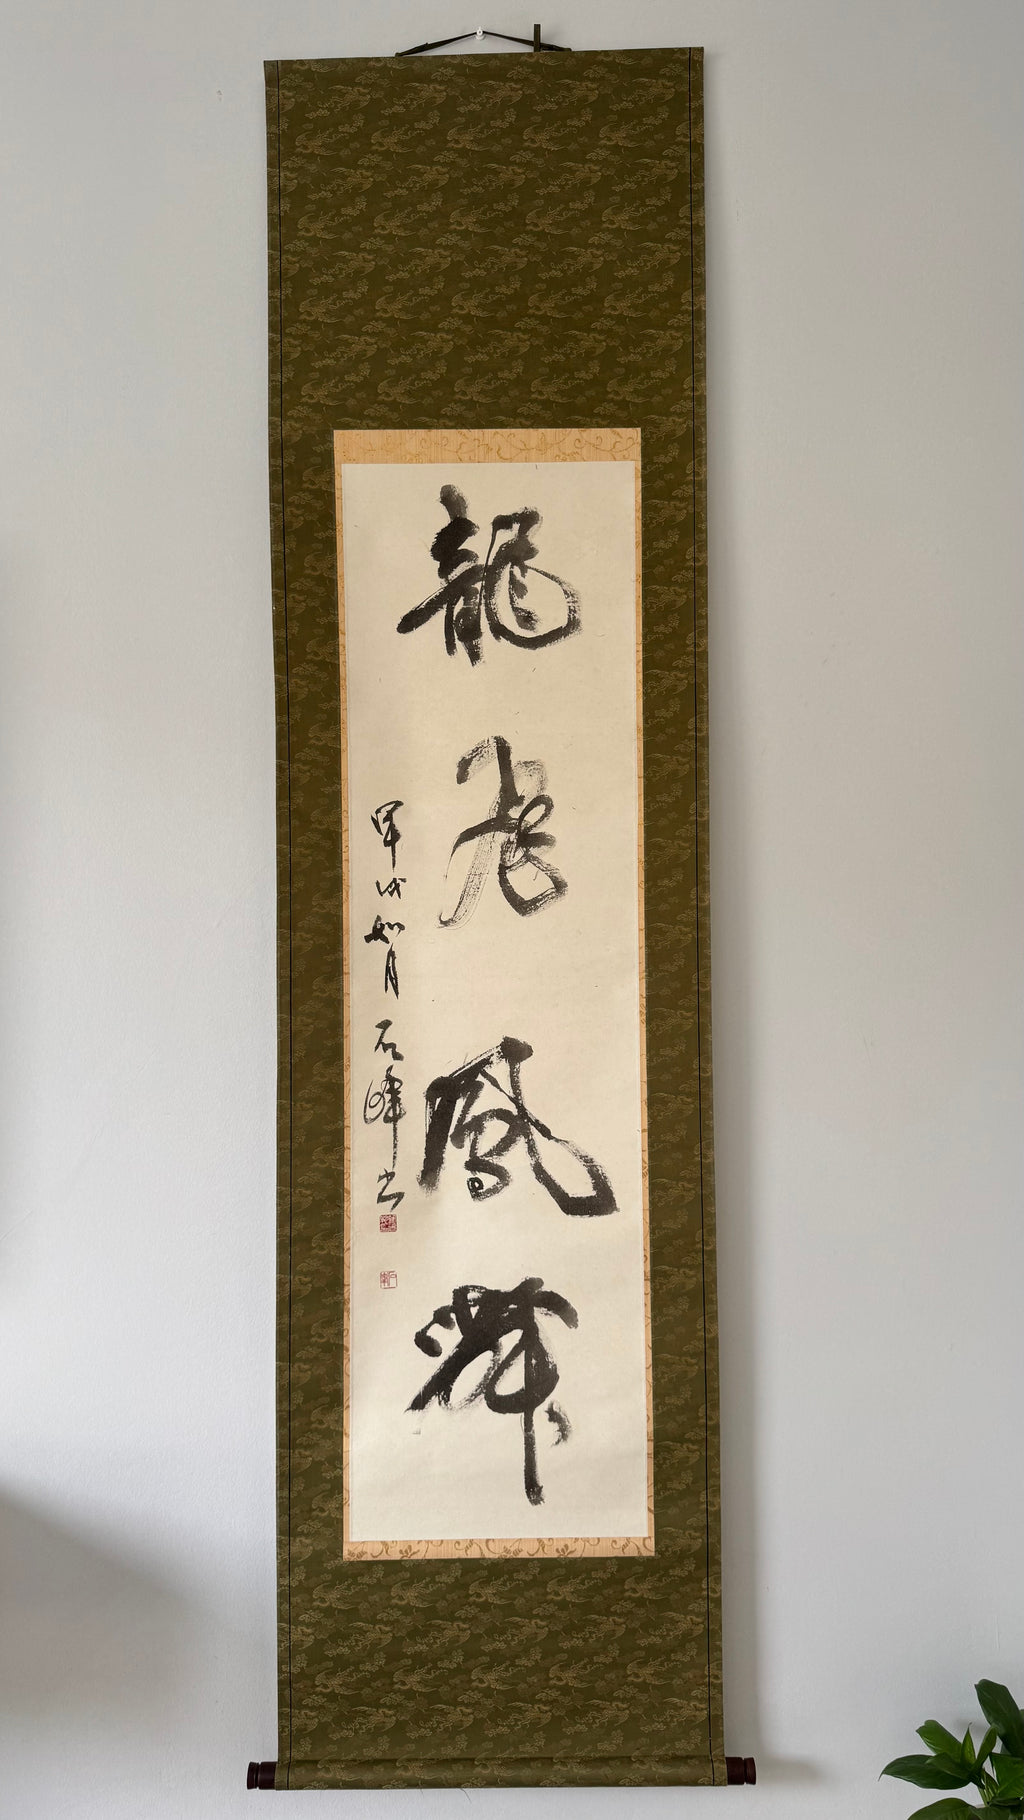 龍飛鳳舞
甲戌如月 石峰书